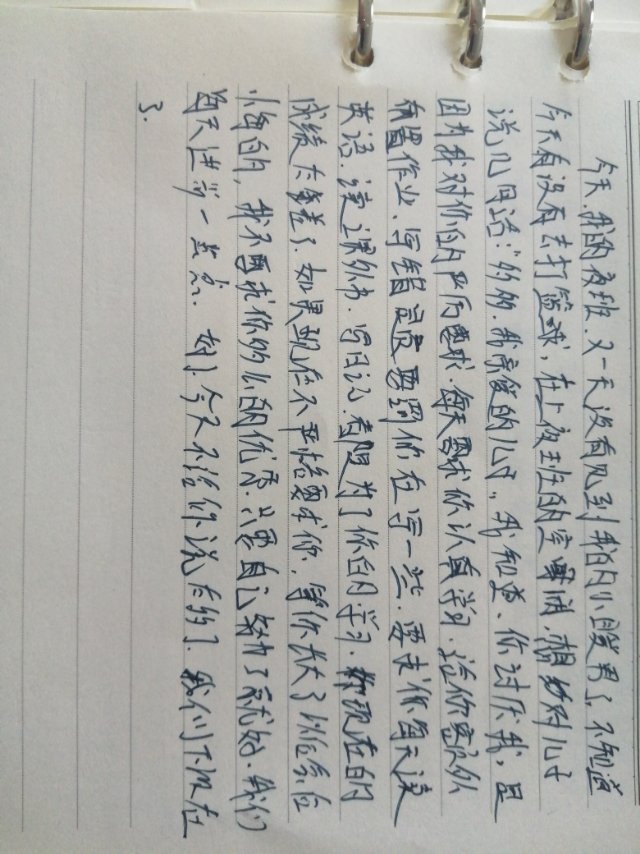 今天,我的夜班.又一天没有见到我的小暖男了.不知道
今天有没有去打篮球,在上夜班的空闲,想给对儿子
说几句话:"的的.我亲爱的儿子,我知道、你讨厌我,是
因为我对你的严厉要求.每天要求你认真学习.给你额外
布置作业.写错字要罚你在写一些.要求你每天读
英语.读课外书.写日记.都是为了你的学习.你现在的
成绩太差了.如果现在不严格要求你.等你长大了以后会后
悔的,我不要求你的多么的优秀.只要自己努力了就好.我们
每天进步一点点. 好了今天不给你说太多了.我们下次在
了.